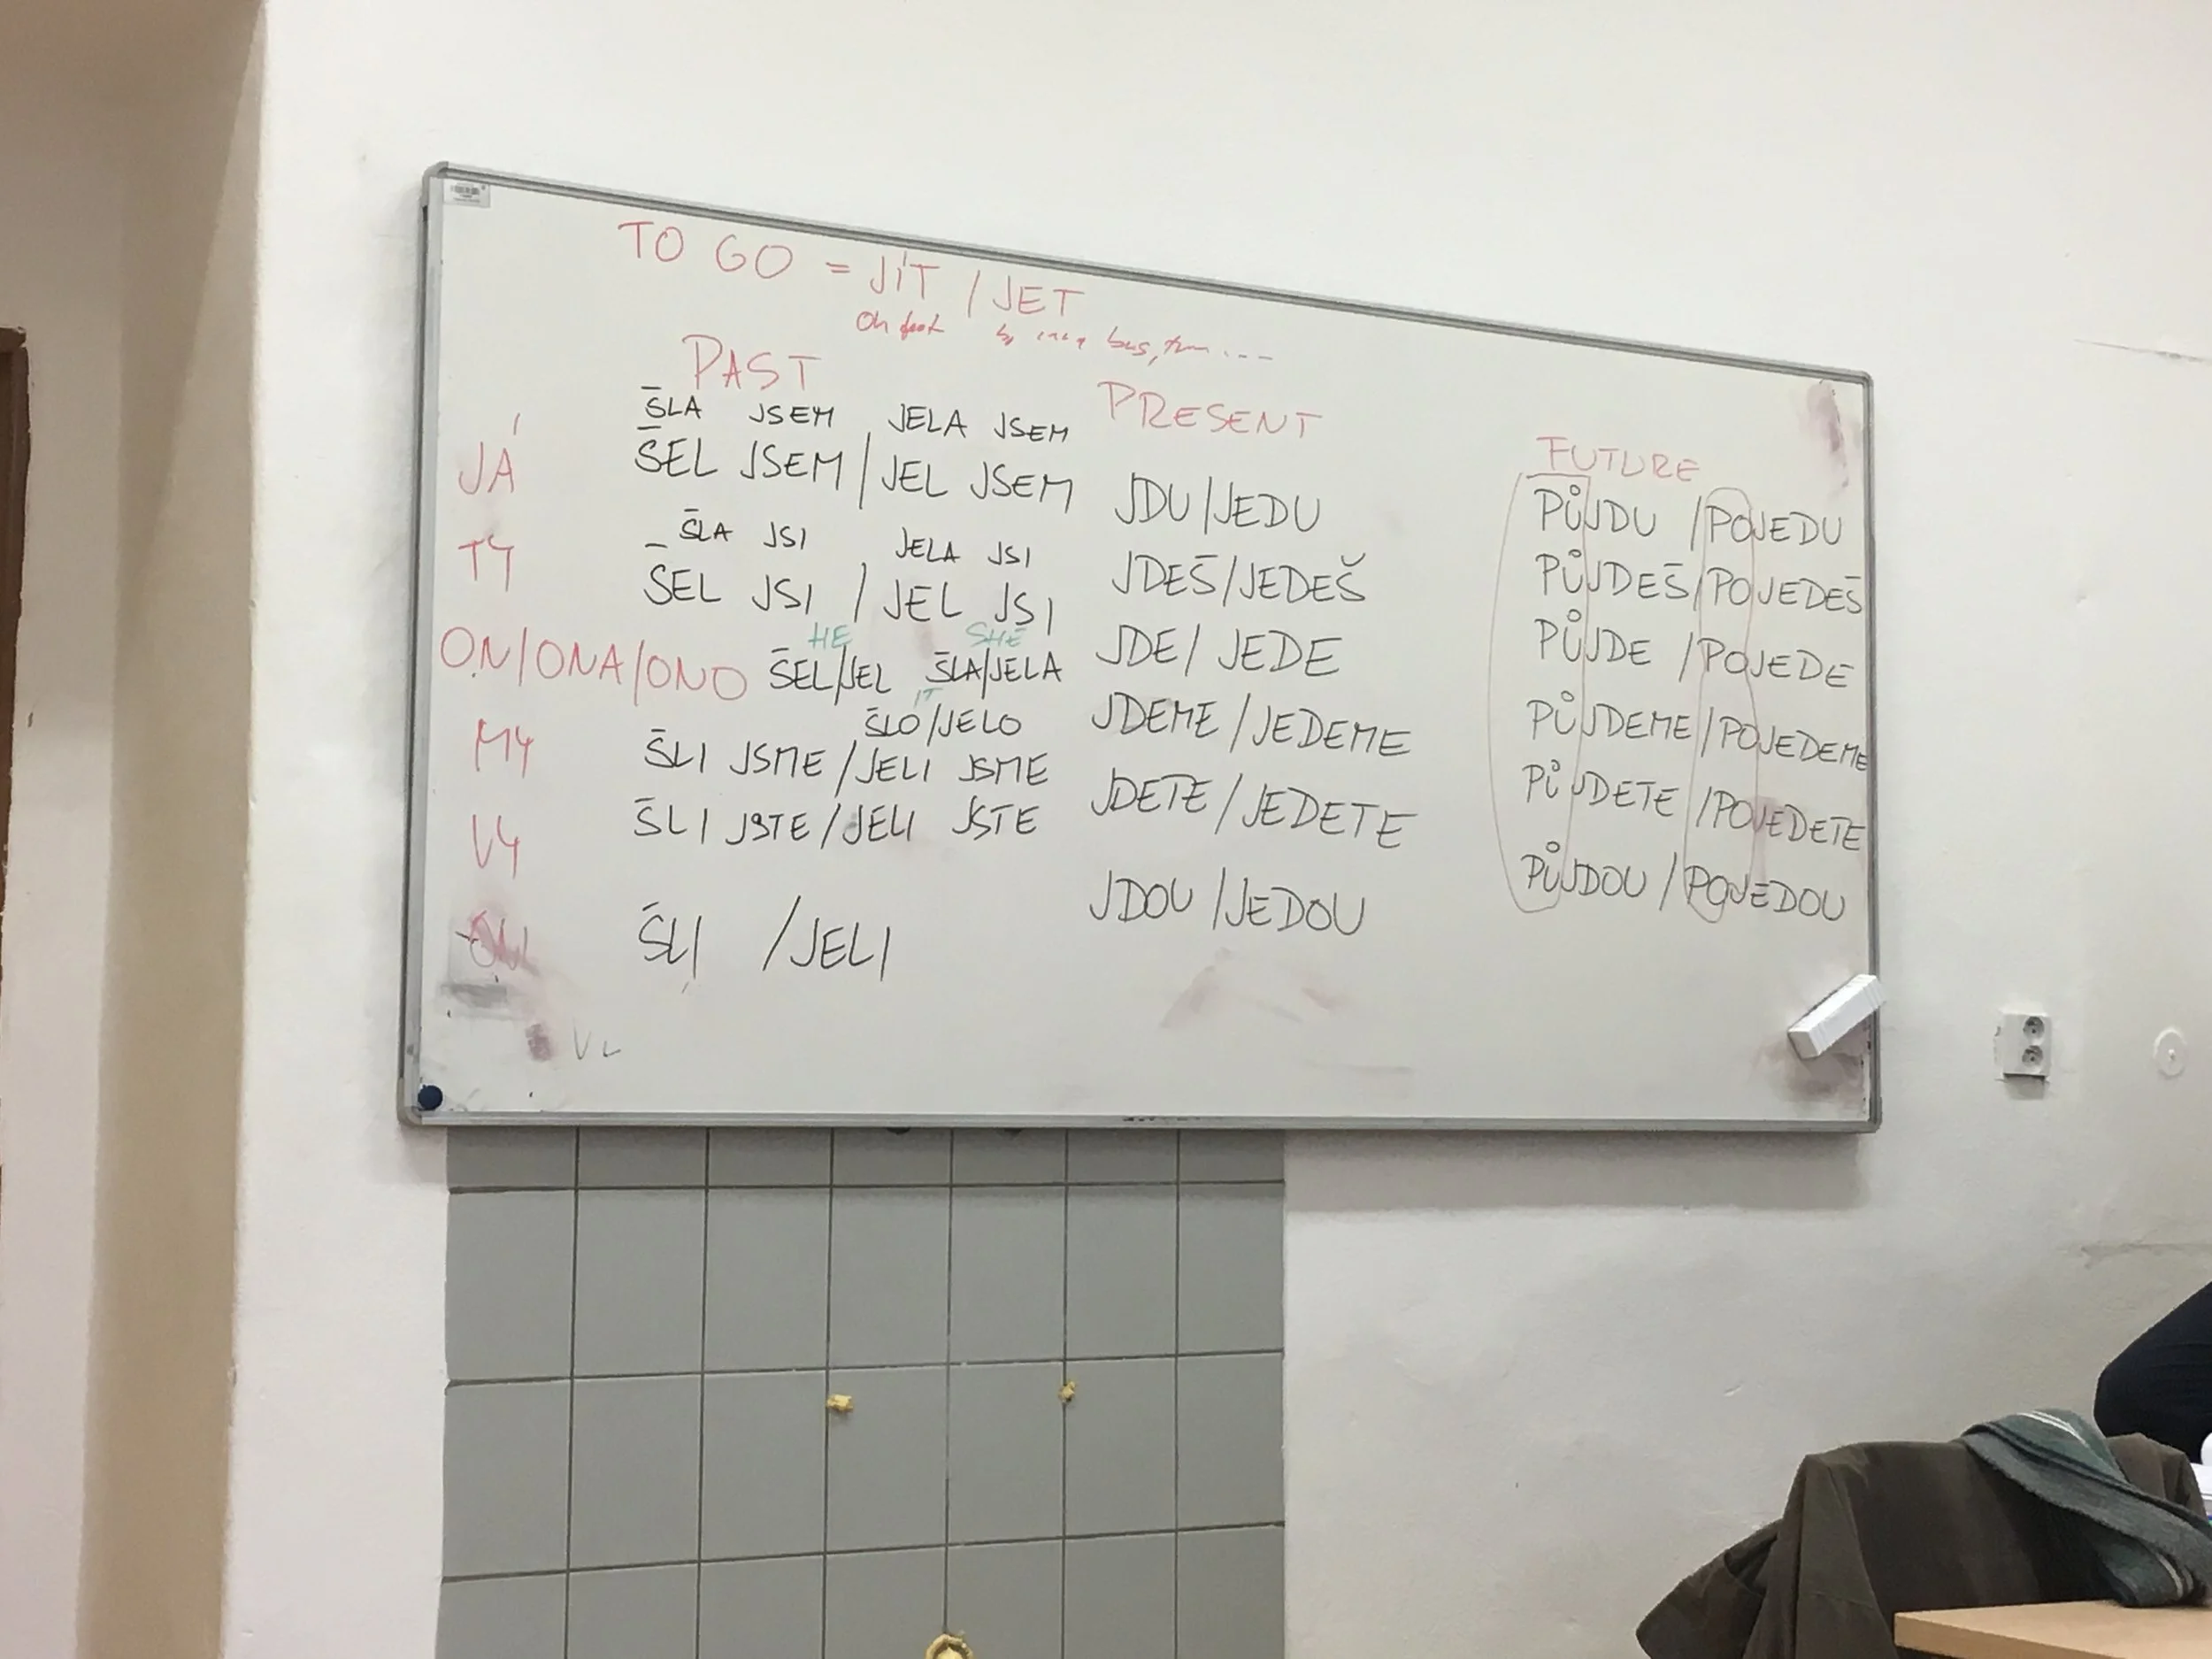 TO GO = JÍT / JET
On foot by bus,
PAST PRESENT FUTURE
ŠLA JSEM JELA JSEM
JÁ ŠEL JSEM / JEL JSEM JDU / JEDU PŮJDU / POJEDU
ŠLA JSI JELA JSI
TY ŠEL JSI / JEL JSI JDEŠ / JEDEŠ PŮJDEŠ / POJEDEŠ
HE SHE
ON / ONA / ONO ŠEL / JEL ŠLA / JELA JDE / JEDE PŮJDE / POJEDE
IT
ŠLO / JELO
MY ŠLI JSME / JELI JSME JDEME / JEDEME PŮJDEME / POJEDEME
VY ŠLI JSTE / JELI JSTE JDETE / JEDETE PŮJDETE / POJEDETE
ONI ŠLI / JELI JDOU / JEDOU PŮJDOU / POJEDOU